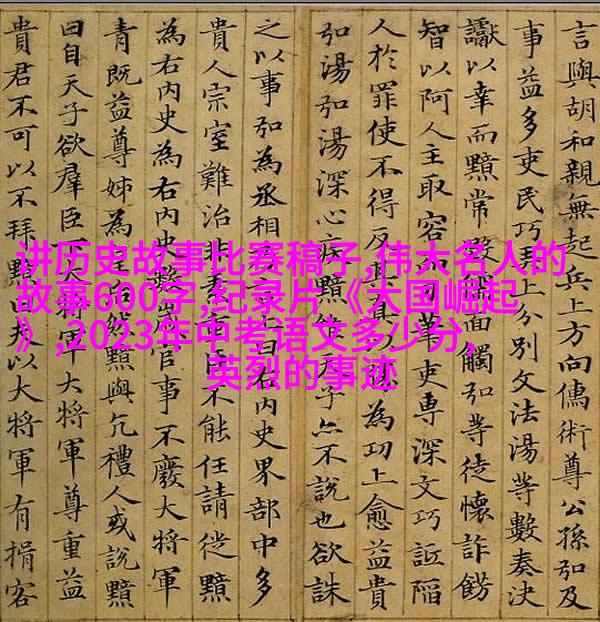 讲历史故事比赛稿子,伟大名人的
故事600字,纪录片《大国崛起
》,2023年中考语文多少分,
英烈的事迹
言與胡和親無起兵上方向儒術尊公孫弘及
事益多吏民巧上分別文法湯等數奏決
讞以幸而黯常毀面觸弘等徒懷詐飾
智以阿人主取容筆吏專深文巧詆陷
人於罪使不得反其為功上愈益貴
弘湯弘湯深心疾黯天子亦不說也欲誅
之以事弘為丞相上曰右內史界部中多
貴人宗室難治非臣不能任請徙黯
為右內史為右內史官事不廢大將軍
青既益尊姊為然黯與亢禮人或說黯
曰自天子欲羣臣下大將軍大將軍尊重益
貴君不可以不拜黯曰夫以大將軍有揖客